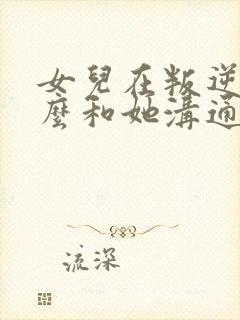 女兒在叛逆
麼和她溝通
流深